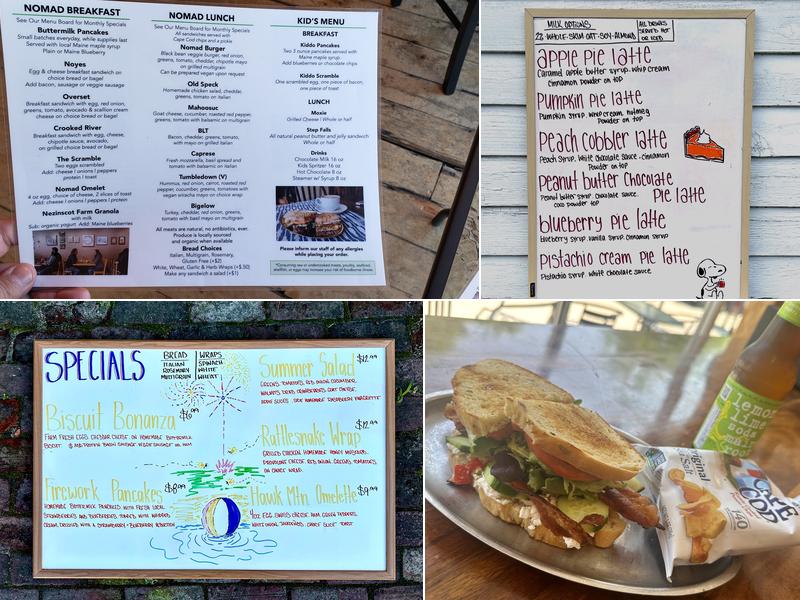 NOMAD BREAKFAST
See Our Menu Board for Monthly Specials
Buttermilk Pancakes
Small batches everyday, while supplies last
Served with local Maine maple syrup
Plain or Maine Blueberry
Noyes
Egg & cheese breakfast sandwich on
choice bread or bagel
Add bacon, sausage or veggie sausage
Overset
Breakfast sandwich with egg, red onion,
greens, tomato, avocado & scallion cream
cheese on choice bread or bagel
Crooked River
Breakfast sandwich with egg, cheese,
chipotle sauce, avocado,
on grilled choice bread or bagel
The Scramble
Two eggs scrambled
Add: cheese | onions | peppers
protein | toast
Nomad Omelet
4 oz egg, choice of cheese, 2 slices of toast
Add: cheese | onions | peppers | protein
Nezinscot Farm Granola
with milk
Sub: organic yogurt Add: Maine blueberries
NOMAD LUNCH
See Our Menu Board for Monthly Specials
All sandwiches served with
Cape Cod chips and a pickle
Nomad Burger
Black bean veggie burger, red onion,
greens, tomato, cheddar, chipotle mayo
on grilled multigrain
Can be prepared vegan upon request
Old Speck
Homemade chicken salad, cheddar,
greens, tomato on Italian
Mahoosuc
Goat cheese, cucumber, roasted red pepper,
greens, tomato with balsamic on multigrain
BLT
Bacon, cheddar, greens, tomato,
with mayo on grilled Italian
Caprese
Fresh mozzarella, basil spread and
tomato with balsamic on Italian
Tumbledown (V)
Hummus, red onion, carrot, roasted red
pepper, cucumber, greens, tomatoes with
vegan sriracha mayo on choice wrap
Bigelow
Turkey, cheddar, red onion, greens,
tomato with basil mayo on multigrain
All meats are natural, no antibiotics, ever.
Produce is locally sourced
and organic when available
Bread Choices
Italian, Multigrain, Rosemary,
Gluten Free (+$2)
White, Wheat, Garlic & Herb Wraps (+$.50)
Make any sandwich a salad (+$1)
KID'S MENU
BREAKFAST
Kiddo Pancakes
Two 3 ounce pancakes served with
Maine maple syrup
Add blueberries or chocolate chips
Kiddo Scramble
One scrambled egg, one piece of bacon,
one piece of toast
LUNCH
Moxie
Grilled Cheese | Whole or half
Step Falls
All natural peanut butter and jelly sandwich
Whole or half
Drinks
Chocolate Milk 16 oz
Kids Spritzer 16 oz
Hot Chocolate 8 oz
Steamer w/ Syrup 8 oz
Please inform our staff of any allergies
while placing your order.
*Consuming raw or undercooked meats, poultry, seafood,
shellfish, or eggs may increase your risk of foodborne illness.
MILK OPTIONS
2% WHOLE-SKIM OAT-SOY-ALMOND
ALL DRINKS
SERVED HOT
OR ICED
APPLE PIE LATTE
Caramel apple butter syrup. whip cream
cinnamon powder on top
PUMPKIN PIE LATTE
Pumpkin syrup. whip cream. nutmeg
Powder on top
Peach cobbler latte
Peach syrup. white chocolate sauce. cinnamon
Powder on top
Peanut butter Chocolate
Peanut butter syrup. chocolate sauce. Pie latte
coco powder top
blueberry pie latte
blueberry syrup vanilla syrup. cinnamon syrup
Pistachio cream pie latte
Pistachio syrup white chocolate sauce
SPECIALS
BREAD
ITALIAN
ROSEMARY
MULTIGRAIN
WRAPS
SPINACH
WHITE
WHEAT
Biscuit Bonanza $6.99
FARM FRESH EGGS CHEDDAR CHEESE ON HOMEMADE BUTTERMILK
Firework Pancakes $8.99
HOMEMADE BUTTERMILK PANCAKES WITH FRESH LOCAL
STRAWBERRIES AND BLUEBERRIES TOPPED WITH WHIPPED
Summer Salad $12.99
GREENS, TOMATOES, RED ONION, CUCUMBER,
WALNUTS DRIED CRANBERRIES GOAT CHEESE,
APPLE SLICES. SIDE HOMEMADE RASPBERRY VINAIGRETTE
Rattlesnake Wrap $12.99
GRILLED CHICKEN HOMEMADE HONEY MUSTARD,
PROVOLONE CHEESE, RED ONION, GREENS, TOMATOES
Hawk Mtn. Omelette $9.99
4oz EGG SWISS CHEESE, HAM, GREEN PEPPERS,
lemon
lime
soda
Original
Sea Salt
CAPE
COD
140